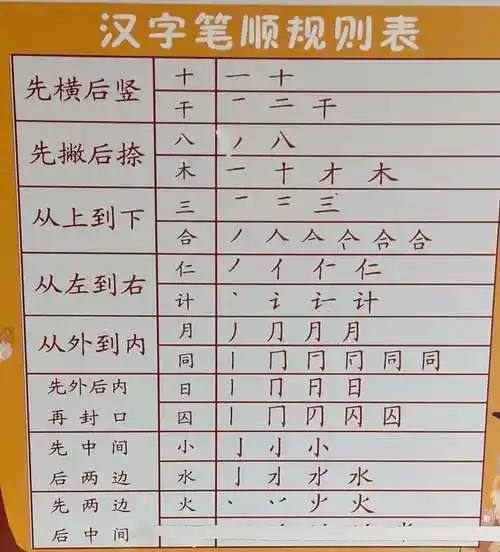 汉字笔顺规则表
先横后竖 十 一 十
干 一 二 干
先撇后捺 八 丿 八
木 一 十 才 木
从上到下 三 一 二 三
合 丿 人 亼 合
从左到右 仁 丿 亻 仁
计 丶 讠 计
从外到内 月 丿 冂 月 月
同 丨 冂 同 同
先外后内 日 丨 冂 日 日
再封口 囚 丨 冂 囚 囚
先中间 小 亅 小 小
后两边 水 亅 水 水
先两边 火 丶 丷 火 火
后中间